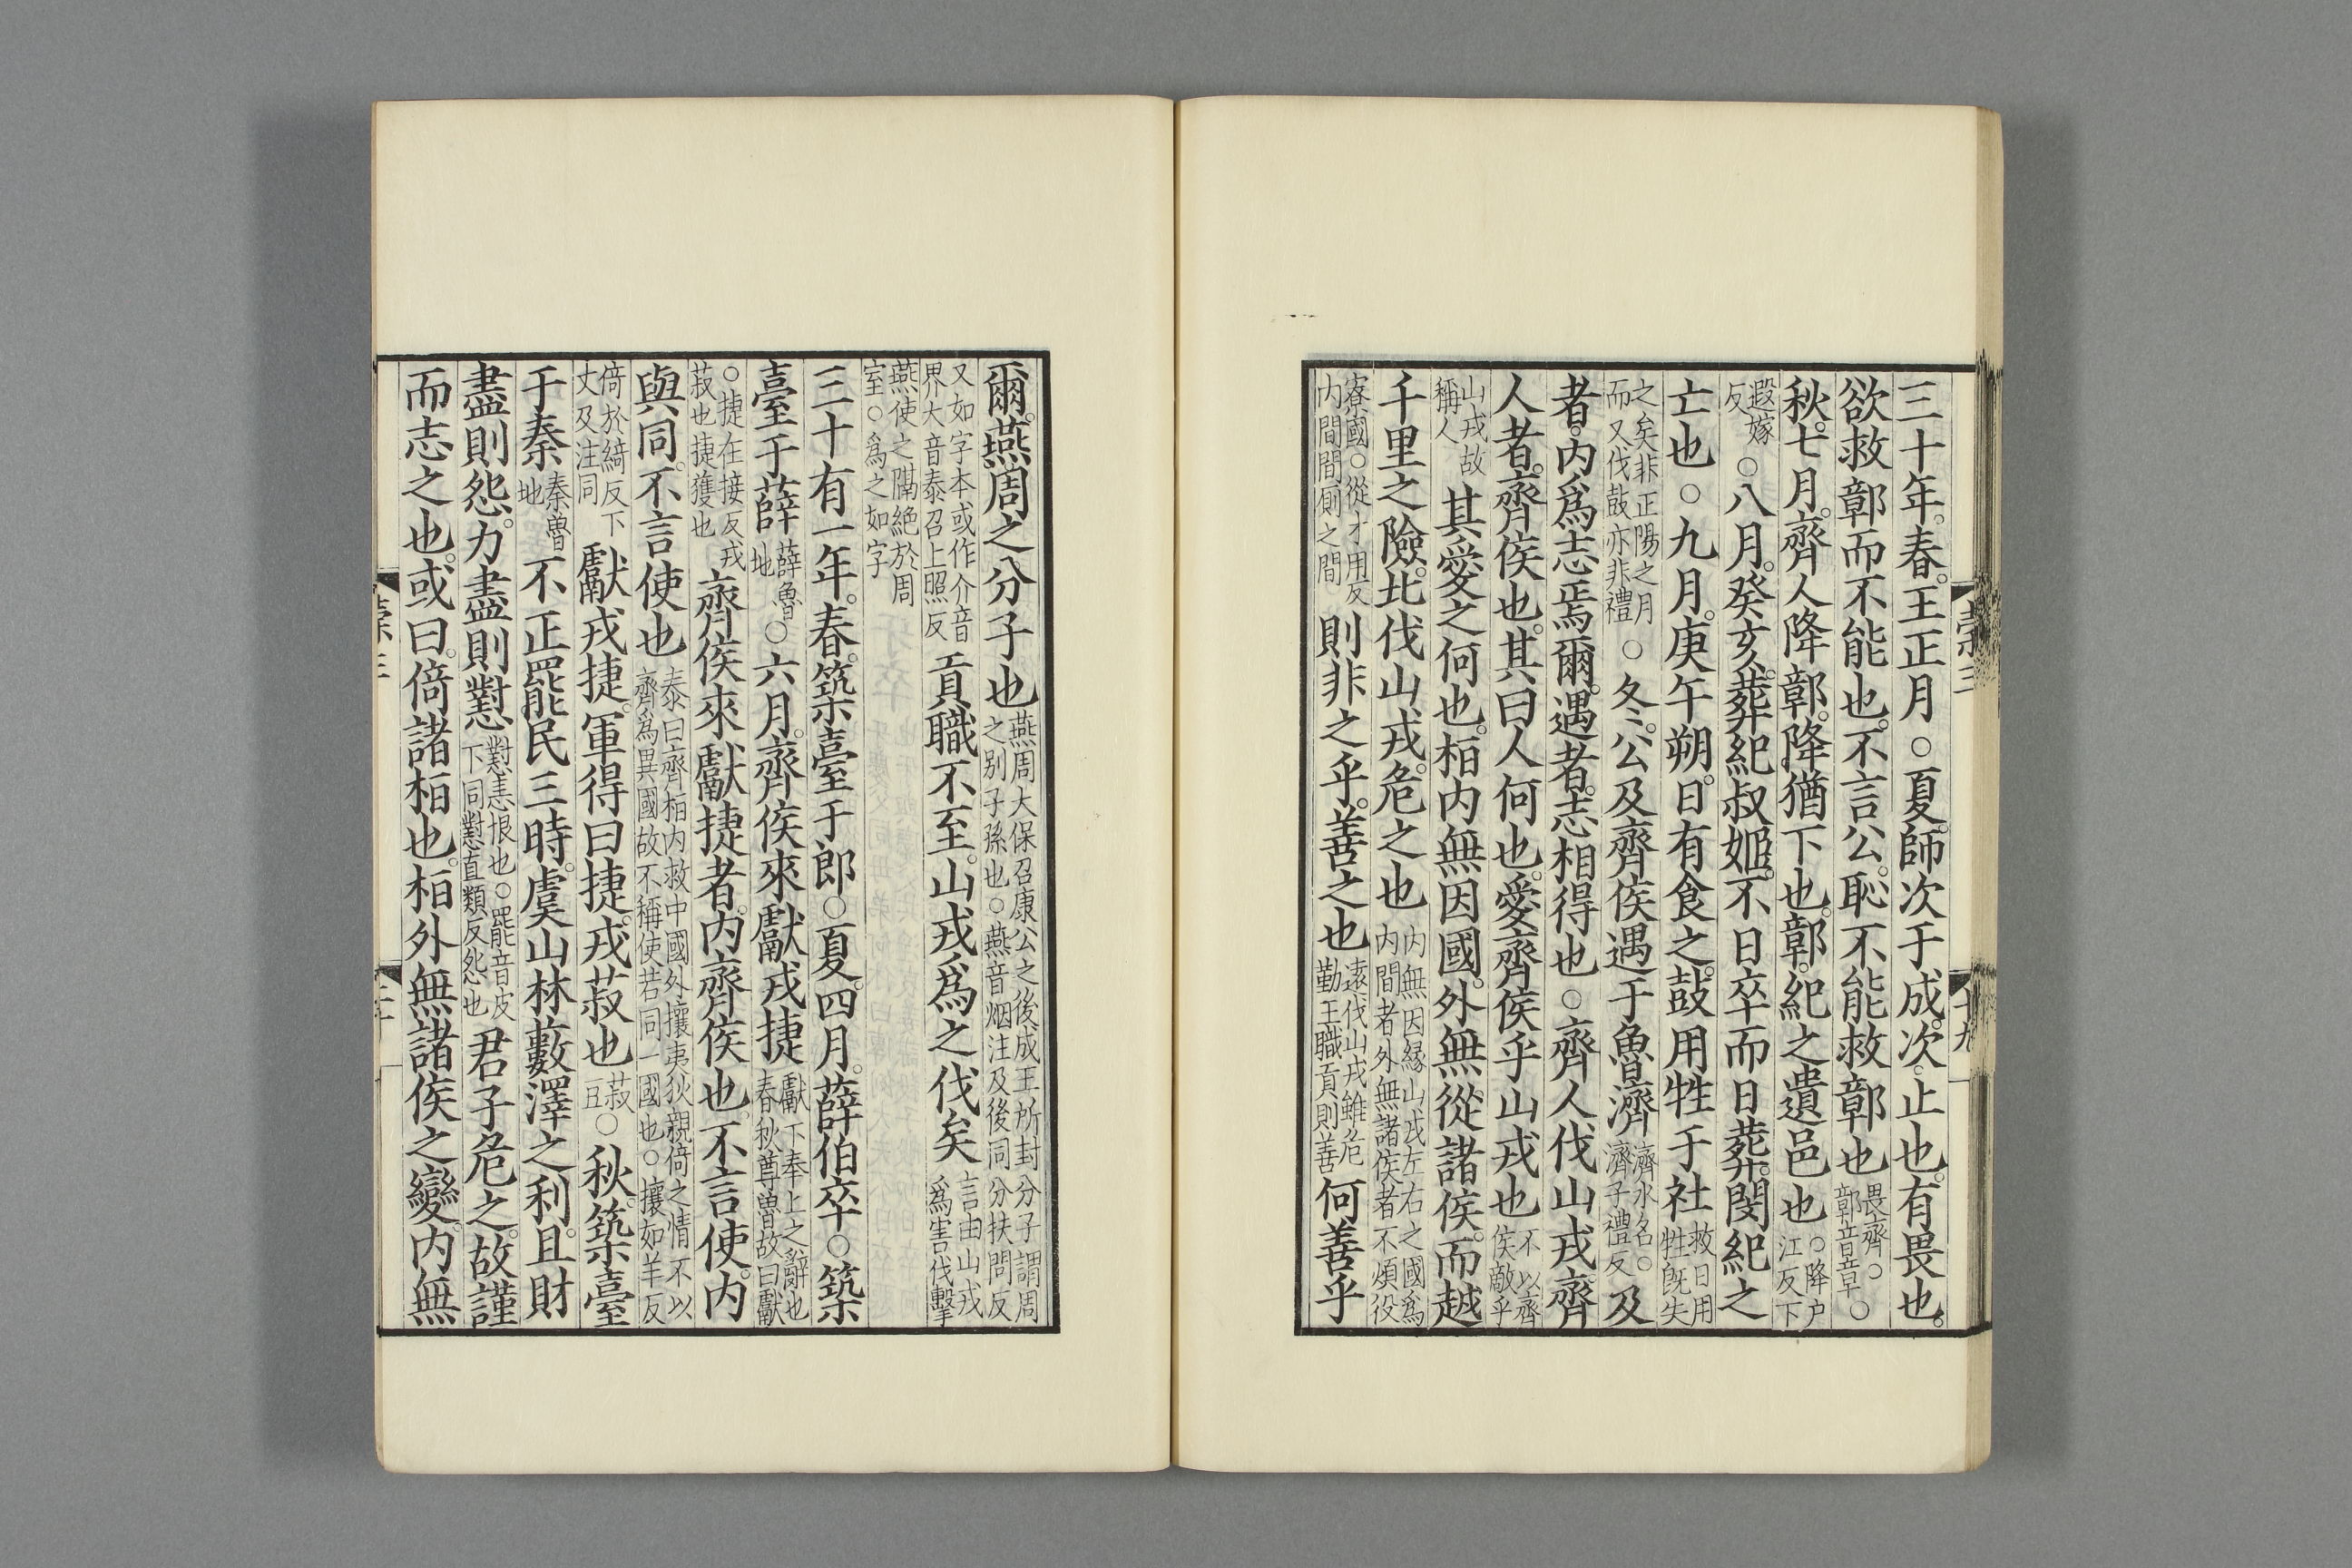 三十年。春。王正月○夏。師次于成。次。止也。有畏也。
欲救鄣而不能也。不言公。恥不能救鄣也畏齊○鄣音章○
秋。七月。齊人降鄣。降猶下也。鄣。紀之遺邑也○降户江反下
遐嫁反○八月。癸亥。葬紀叔姬。不日卒而日葬。閔紀之
亡也○九月。庚午朔。日有食之。鼓用牲于社救日用牲既失
之矣非正陽之月而又伐鼓亦非禮○冬。公及齊侯遇于魯濟濟水名○濟子禮反及
者。内爲志焉爾。遇者。志相得也○齊人伐山戎。齊
人者。齊侯也。其曰人何也。愛齊侯乎山戎也不以齊侯敵乎
山戎故稱人其愛之何也。桓内無因國。外無從諸侯。而越
千里之險。北伐山戎。危之也内無因縁山戎左右之國爲内間者外無諸侯者不煩役
寮國○從才用反内間間厠之間則非之乎。善之也遠伐山戎雖危勤王職貢則善何善乎
爾。燕周之分子也燕周大保召康公之後成王所封分子謂周之别子孫也○燕音烟注及後同分扶問反
又如字本或作介音界大音泰召上照反貢職不至。山戎爲之伐矣言由山戎爲害伐擊
燕使之隔絶於周室○爲之如字
三十有一年。春。築臺于郎○夏。四月。薛伯卒○築
臺于薛薛魯地○六月。齊侯來獻戎捷獻下奉上之辭也春秋尊魯故曰獻
○捷在接反戎菽也捷獲也齊侯來獻捷者。内齊侯也。不言使。内
與同。不言使也泰曰齊桓内救中國外攘夷狄親倚之情不以齊爲異國故不稱使若同一國也○攘如羊反
倚於綺反下丈及注同獻戎捷。軍得曰捷。戎菽也菽豆○秋。築臺
于秦秦魯地不正罷民三時。虞山林藪澤之利。且財
盡則怨。力盡則懟懟恚恨也○罷音皮下同懟直類反怨也君子危之。故謹
而志之也。或曰。倚諸桓也。桓外無諸侯之變。内無